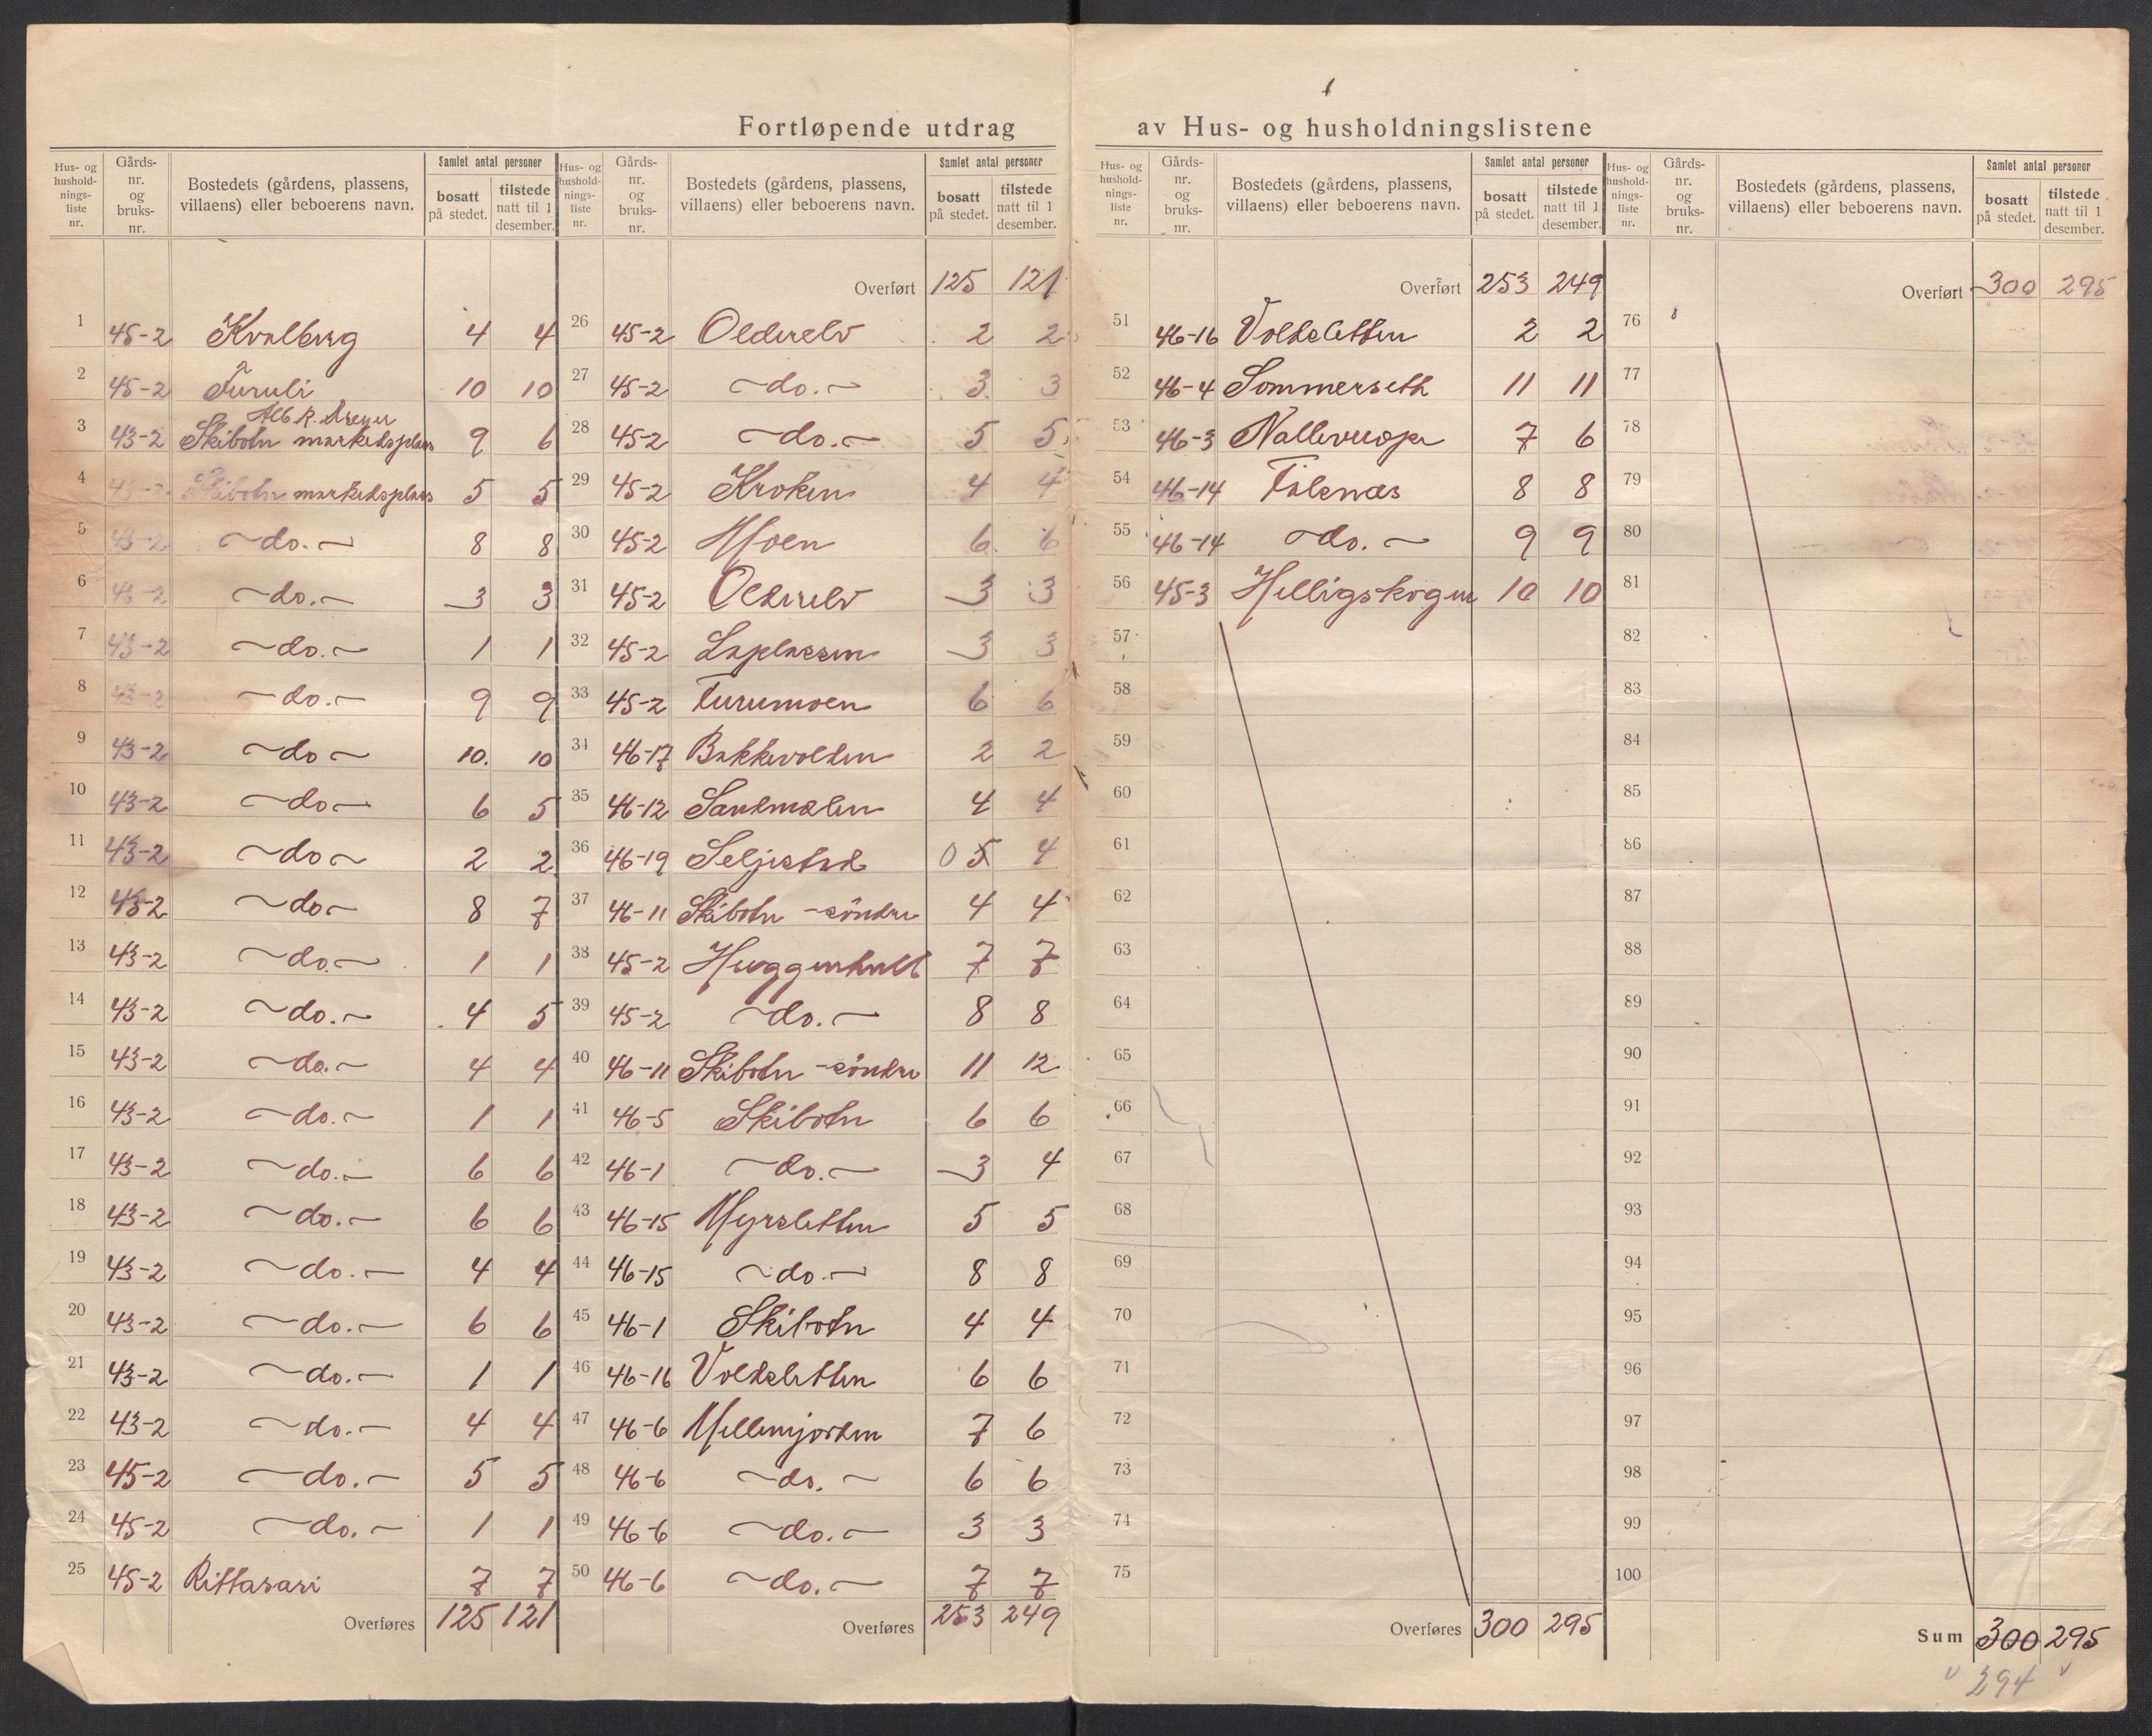 Fortløpende utdrag av Hus- og husholdningslistene
Hus- og husholdnings-liste nr. | Gårds-nr. og bruks-nr. | Bostedets (gårdens, plassens, villaens) eller beboerens navn. | Samlet antal personer | bosatt på stedet. | tilstede natt til 1 desember.
1 45-2 Kvalberg 4 4
2 45-2 Furuli 10 10
Alb. R. Dreyer
3 43-2 Skibotn markedsplass 9 6
4 43-2 Skibotn markedsplass 5 5
5 43-2 do. 8 8
6 43-2 do. 3 3
7 43-2 do. 1 1
8 43-2 do. 9 9
9 43-2 do 10. 10
10 43-2 do 6 5
11 43-2 do 2 2
12 43-2 do 8 7
13 43-2 do. 1 1
14 43-2 do. 4 5
15 43-2 do. 4 4
16 43-2 do. 1 1
17 43-2 do. 6 6
18 43-2 do. 6 6
19 43-2 do. 4 4
20 43-2 do. 6 6
21 43-2 do. 1 1
22 43-2 do. 4 4
23 45-2 do. 5 5
24 45-2 do. 1 1
25 45-2 Rittavari 7 7
Overføres 125 121
Hus- og husholdnings-liste nr. | Gårds-nr. og bruks-nr. | Bostedets (gårdens, plassens, villaens) eller beboerens navn. | Samlet antal personer | bosatt på stedet. | tilstede natt til 1 desember.
Overført 125 121
26 45-2 Olderelv 2 2
27 45-2 do. 3 3
28 45-2 do. 5 5
29 45-2 Kroken 4 4
30 45-2 Moen 6 6
31 45-2 Olderelv 3 3
32 45-2 Laplassen 3 3
33 45-2 Furumoen 6 6
34 46-17 Bakkevolden 2 2
35 46-12 Sandmælen 4 4
36 46-19 Seljestad 0 5 4
37 46-11 Skibotn -söndre 4 4
38 45-2 7 7
39 45-2 do. 8 8
40 46-11 Skibotn -söndre 11 12
41 46-5 Skibotn 6 6
42 46-1 do. 3 4
43 46-15 Myrsletten 5 5
44 46-15 do. 8 8
45 46-1 Skibotn 4 4
46 46-16 Voldsletten 6 6
47 46-6 Mellemjorden 7 6
48 46-6 do. 6 6
49 46-6 do. 3 3
50 46-6 do. 7 7
Overføres 253 249
Hus- og husholdnings-liste nr. | Gårds-nr. og bruks-nr. | Bostedets (gårdens, plassens, villaens) eller beboerens navn. | Samlet antal personer | bosatt på stedet. | tilstede natt til 1 desember.
Overført 253 249
51 46-16 Voldsletten 2 2
52 46-4 Sommerseth 11 11
53 46-3 7 6
54 46-14 8 8
55 46-14 do. 9 9
56 45-3 Helligskogen 10 10
57
58
59
60
61
62
63
64
65
66
67
68
69
70
71
72
73
74
75
Overføres 300 295
Hus- og husholdnings-liste nr. | Gårds-nr. og bruks-nr. | Bostedets (gårdens, plassens, villaens) eller beboerens navn. | Samlet antal personer | bosatt på stedet. | tilstede natt til 1 desember.
Overført 300 295
76
77
78
79
80
81
82
83
84
85
86
87
88
89
90
91
92
93
94
95
96
97
98
99
100
Sum 300 295
294